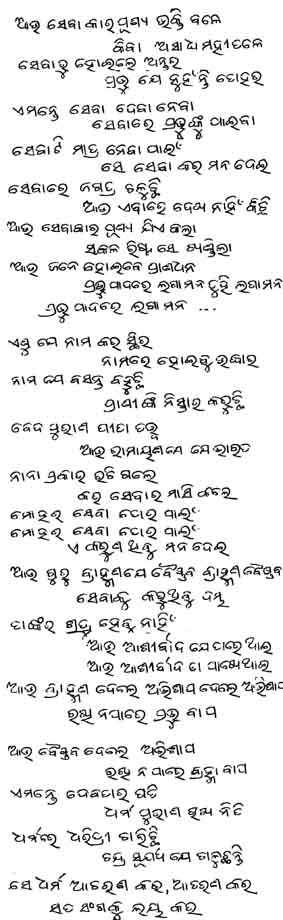 ଆଉ ସେବା କାର ପୂଣ୍ୟ ଭକ୍ତି ବଳେ
କିବା ଅସାଧ ମହୀତଳେ
ସେବାରୁ ହୋଇଲେ ଅନ୍ତର
ପ୍ରଭୁ ଯେ ନୁହଁନ୍ତି ତୋହର
ଏମନ୍ତେ ସେବା ଦେବା ନେବା
ସେବାରେ ପ୍ରଭୁଙ୍କୁ ପାଇବା
ସେବାଟି ମାତ୍ର ନେବା ପାଇଁ
ସେ ସେବା କର ମନ ଦେଇ
ସେବାରେ ଜଗତ ଚଳୁଛି
ଆଉ ଏବାରେ ଦେଖ ନାହିଁ କିଛି
ଆଉ ସେବାକାର ପୂଣ୍ୟ ଯିଏ କଲା
ସକଳ ରିଷ୍ଟ ସେ ଖଣ୍ଡିଲା
ଆଉ ଜନେ ହୋଇବେ ପ୍ରାଣଧନ
ପ୍ରଭୁ ପାଦରେ ଲଗା ମନ ତୁହି ଲଗା ମନ
ପ୍ରଭୁ ପାଦରେ ଲଗା ମନ ...
ଏଣୁ ସେ ନାମ କର ସ୍ଥିର
ନାମରେ ହୋଇଣ୍ତୁ ଉଦ୍ଧାର
ନାମ ଯେ ବସନ୍ତ କହୁଛି
ପ୍ରାଣୀଙ୍କି ନିସ୍ତାର କରୁଛି
ବେଦ ପୁରାଣ ଗୀତା ତତ୍ତ୍ୱ
ଆଉ ରାମାୟଣ ଯେ ଭାରତ
ନାନା ପ୍ରକାର ରଚି ଗଲେ
କର ସେବାର ମାସି କଲେ
ମୋହର ସେବା ତୋର ପାଇଁ
ମୋହର ସେବା ତୋର ପାଇଁ
ଏ କରୁଣ ଥିବୁ ମନ ଦେଇ
ଆଉ ଗୁରୁ ବ୍ରାହ୍ମଣ ଯେ ବୈଷ୍ଣବ ବ୍ରାହ୍ମଣ ବୈଷ୍ଣବ
ସେବାକୁ କରୁଥିବୁ ଦମ୍ଭ
ତାଙ୍କର ଶତ୍ରୁ ହେବୁ ନାହିଁ
ଆଉ ଆଶୀର୍ବାଦ ଯେ ପାରେ ଥାଇ
ଆଉ ଆଶୀର୍ବାଦ ତା ପାଖେ ଥାଇ
ଆଉ ବ୍ରାହ୍ମଣ ଦେଲେ ଅଭିଶାପ ଦେଲେ ଅଭିଶାପ
ରଖି ନପାରେ ପ୍ରଭୁ ବାପ
ଆଉ ବୈଷ୍ଣବ ଦେଲେ ଅଭିଶାପ
ରଖି ନ ପାରେ ବ୍ରହ୍ମା ବାପ
ଏମନ୍ତେ ଦେବତାର ଗତି
ଧର୍ମ ପୁରାଣ ରଖ ନିତି
ଧର୍ମରେ ଧରିତ୍ରୀ ଚାଲିଛି
ଚନ୍ଦ୍ର ସୂର୍ଯ୍ୟ ଯେ ଚାଳୁଛନ୍ତି
ସେ ଧର୍ମ ଆଚରଣ କର, ଆଚରଣ କର
ସତ ସଂଗକୁ ଲୟ କର